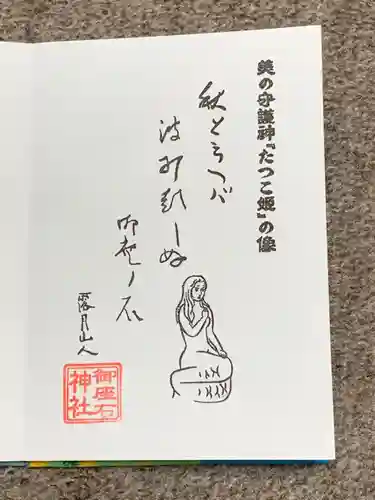 美の守護神『たつこ姫』の像
秋と云へバ
波 しぬ
御座ノ石
露月山人
御座石
神社